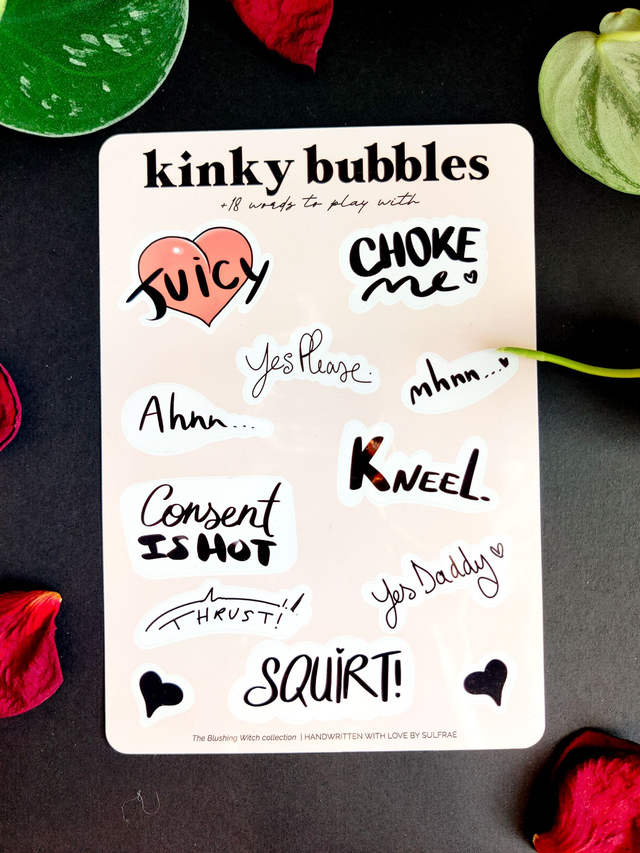 kinky bubbles
+18 words to play with
JUICY
CHOKE
me
Yes Please.
mhnn...
Ahnn...
KNEEL.
Consent
IS HOT
Yes Daddy
THRUST!!
SQUIRT!
The Blushing Witch collection | HANDWRITTEN WITH LOVE BY SULFRAE